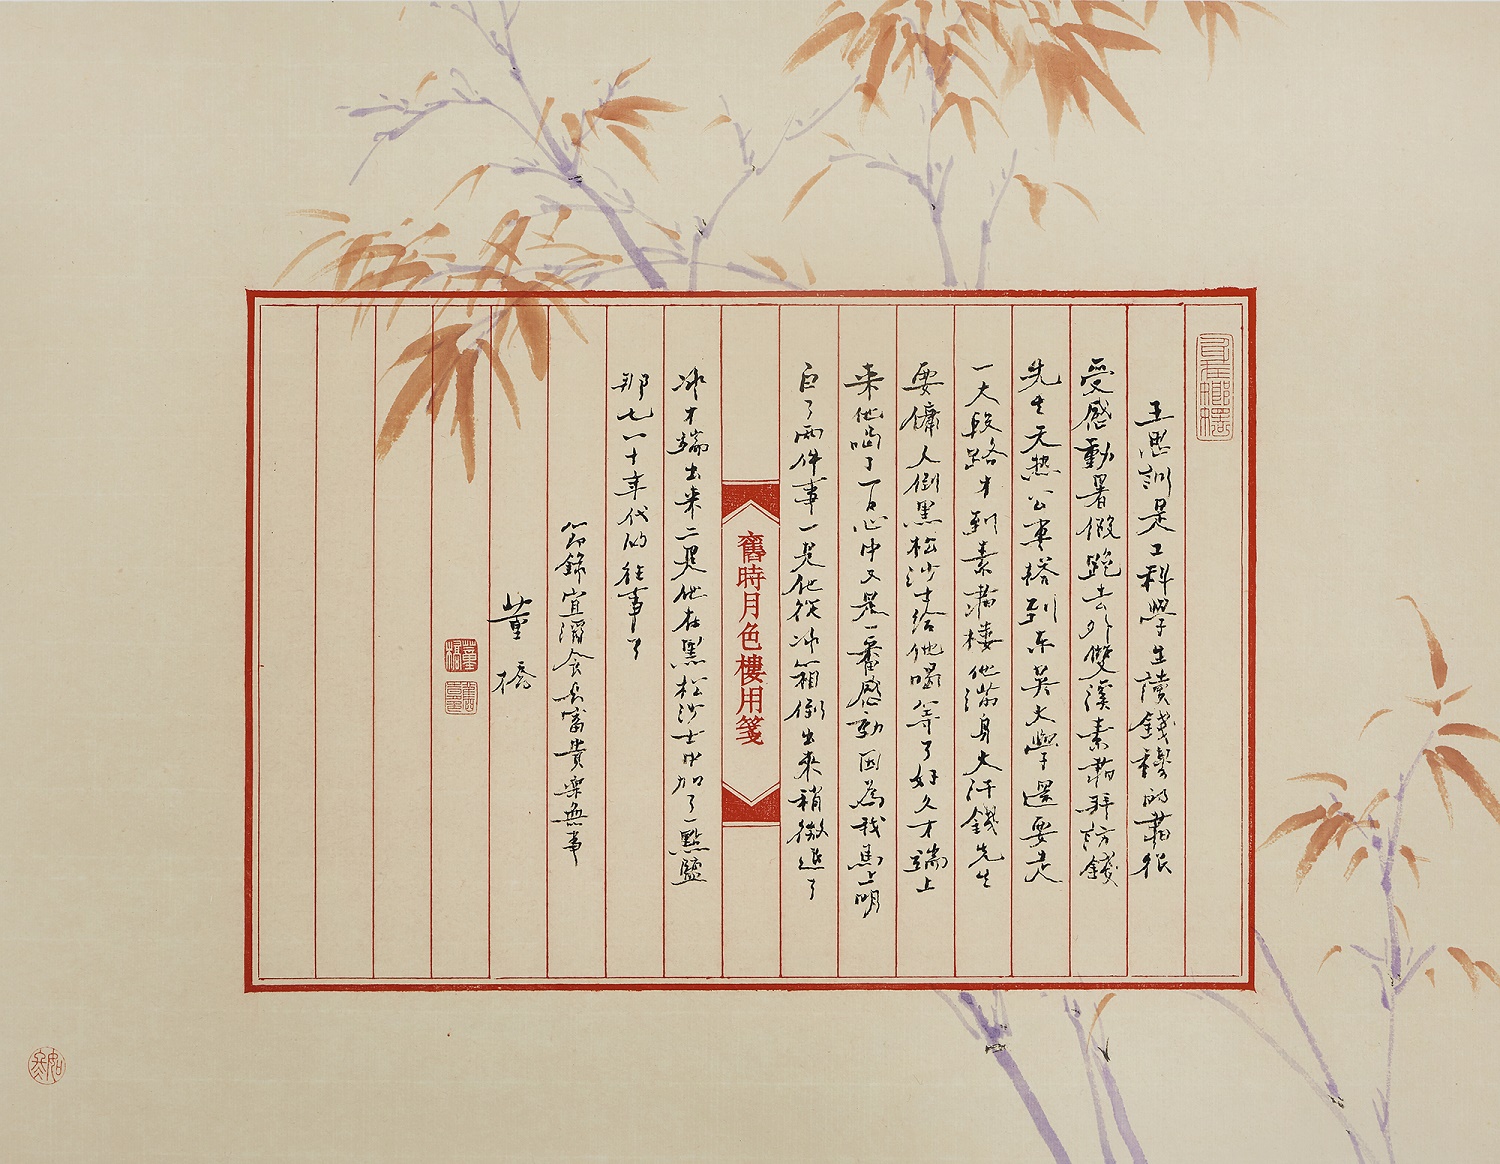 王思訓是工科學生讀錢穆的書很
受感動暑假跑去外雙溪素書拜訪錢
先生天熱公車搭到東吳大學還要走
一大段路才到素書樓他滿身大汗錢先生
要傭人倒黑松沙士給他喝等了好久才端上
來他了一口心中又是一番感動因為我馬上明
白了兩件事一是他從冰箱倒出來稍微退了
舊時月色樓用箋
冰才端出來二是他在黑松沙士中加了一點鹽
那七八十年代的往事了
節錄宜酒食長富貴樂無事
董橋
董橋